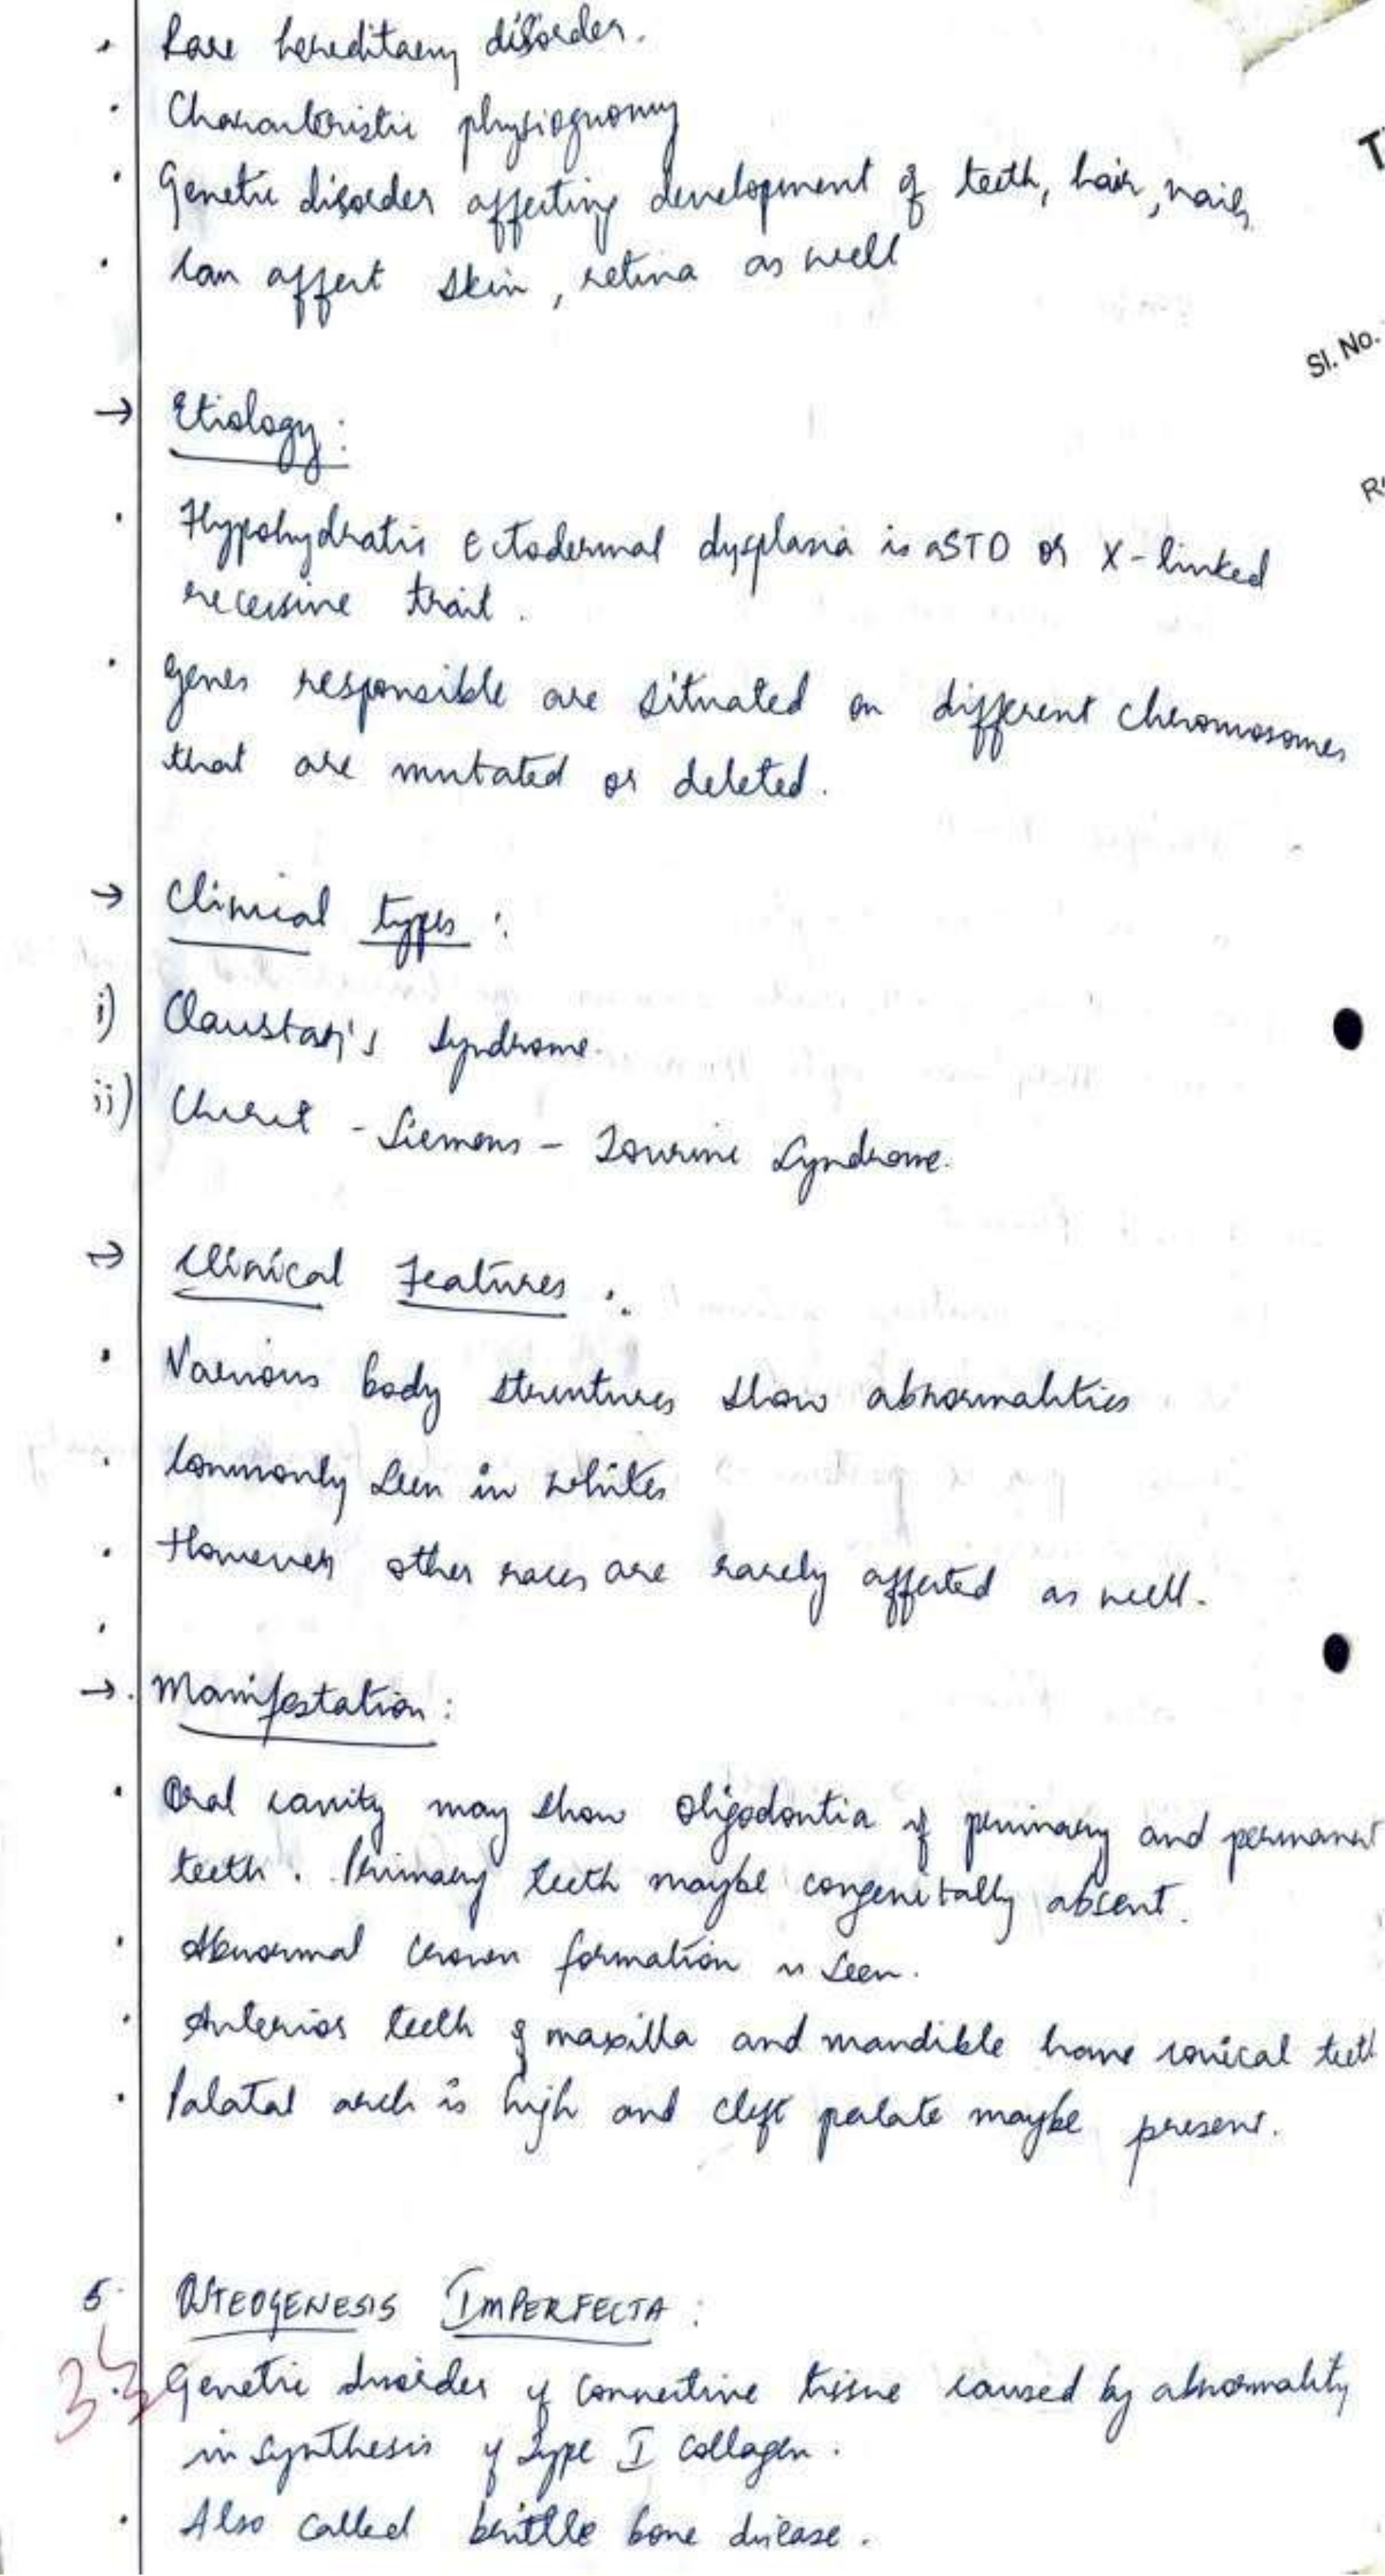 • Rare hereditary disorder.
• Characteristic physiognomy
• Genetic disorder affecting development of teeth, hair, nails
• Can affect skin, retina as well
Sl. No.
→ Etiology:
• Hypohydratic Ectodermal dysplasia is a STD or X-linked
recessive trait.
• Genes responsible are situated on different chromosomes
that are mutated or deleted.
→ Clinical types:
i) Clouston's syndrome.
ii) Christ - Siemens - Tourine Syndrome.
→ Clinical Features:
• Various body structures show abnormalities
• Commonly seen in whites
• However other races are rarely affected as well.
•
→ Manifestation:
• Oral cavity may show oligodontia of primary and permanent
teeth. Primary teeth maybe congenitally absent.
• Abnormal crown formation is seen.
• Anterior teeth of maxilla and mandible have conical teeth
• Palatal arch is high and cleft palate maybe present.
5. OSTEOGENESIS IMPERFECTA:
Genetic disorder of connective tissue caused by abnormality
in synthesis of Type I collagen.
• Also called brittle bone disease.